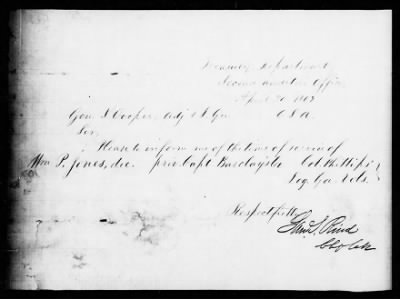 Treasury Department
Second Auditors Office
April 20 186
Gen S Cooper, Adj & I. Gen C S A.
Sir,
Please to inform me of the time of service of
Wm P. Jones, dec. priv. Capt Barclay's Co Col Phillips'
Leg. Ga. Vols.
Respectfully
Clk